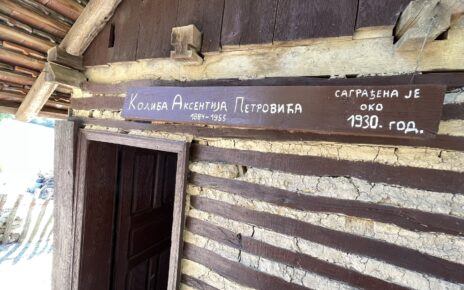 Колиба Аксентија Петровића
1884-1955
САГРАЂЕНА ЈЕ
ОКО
1930. ГОД.